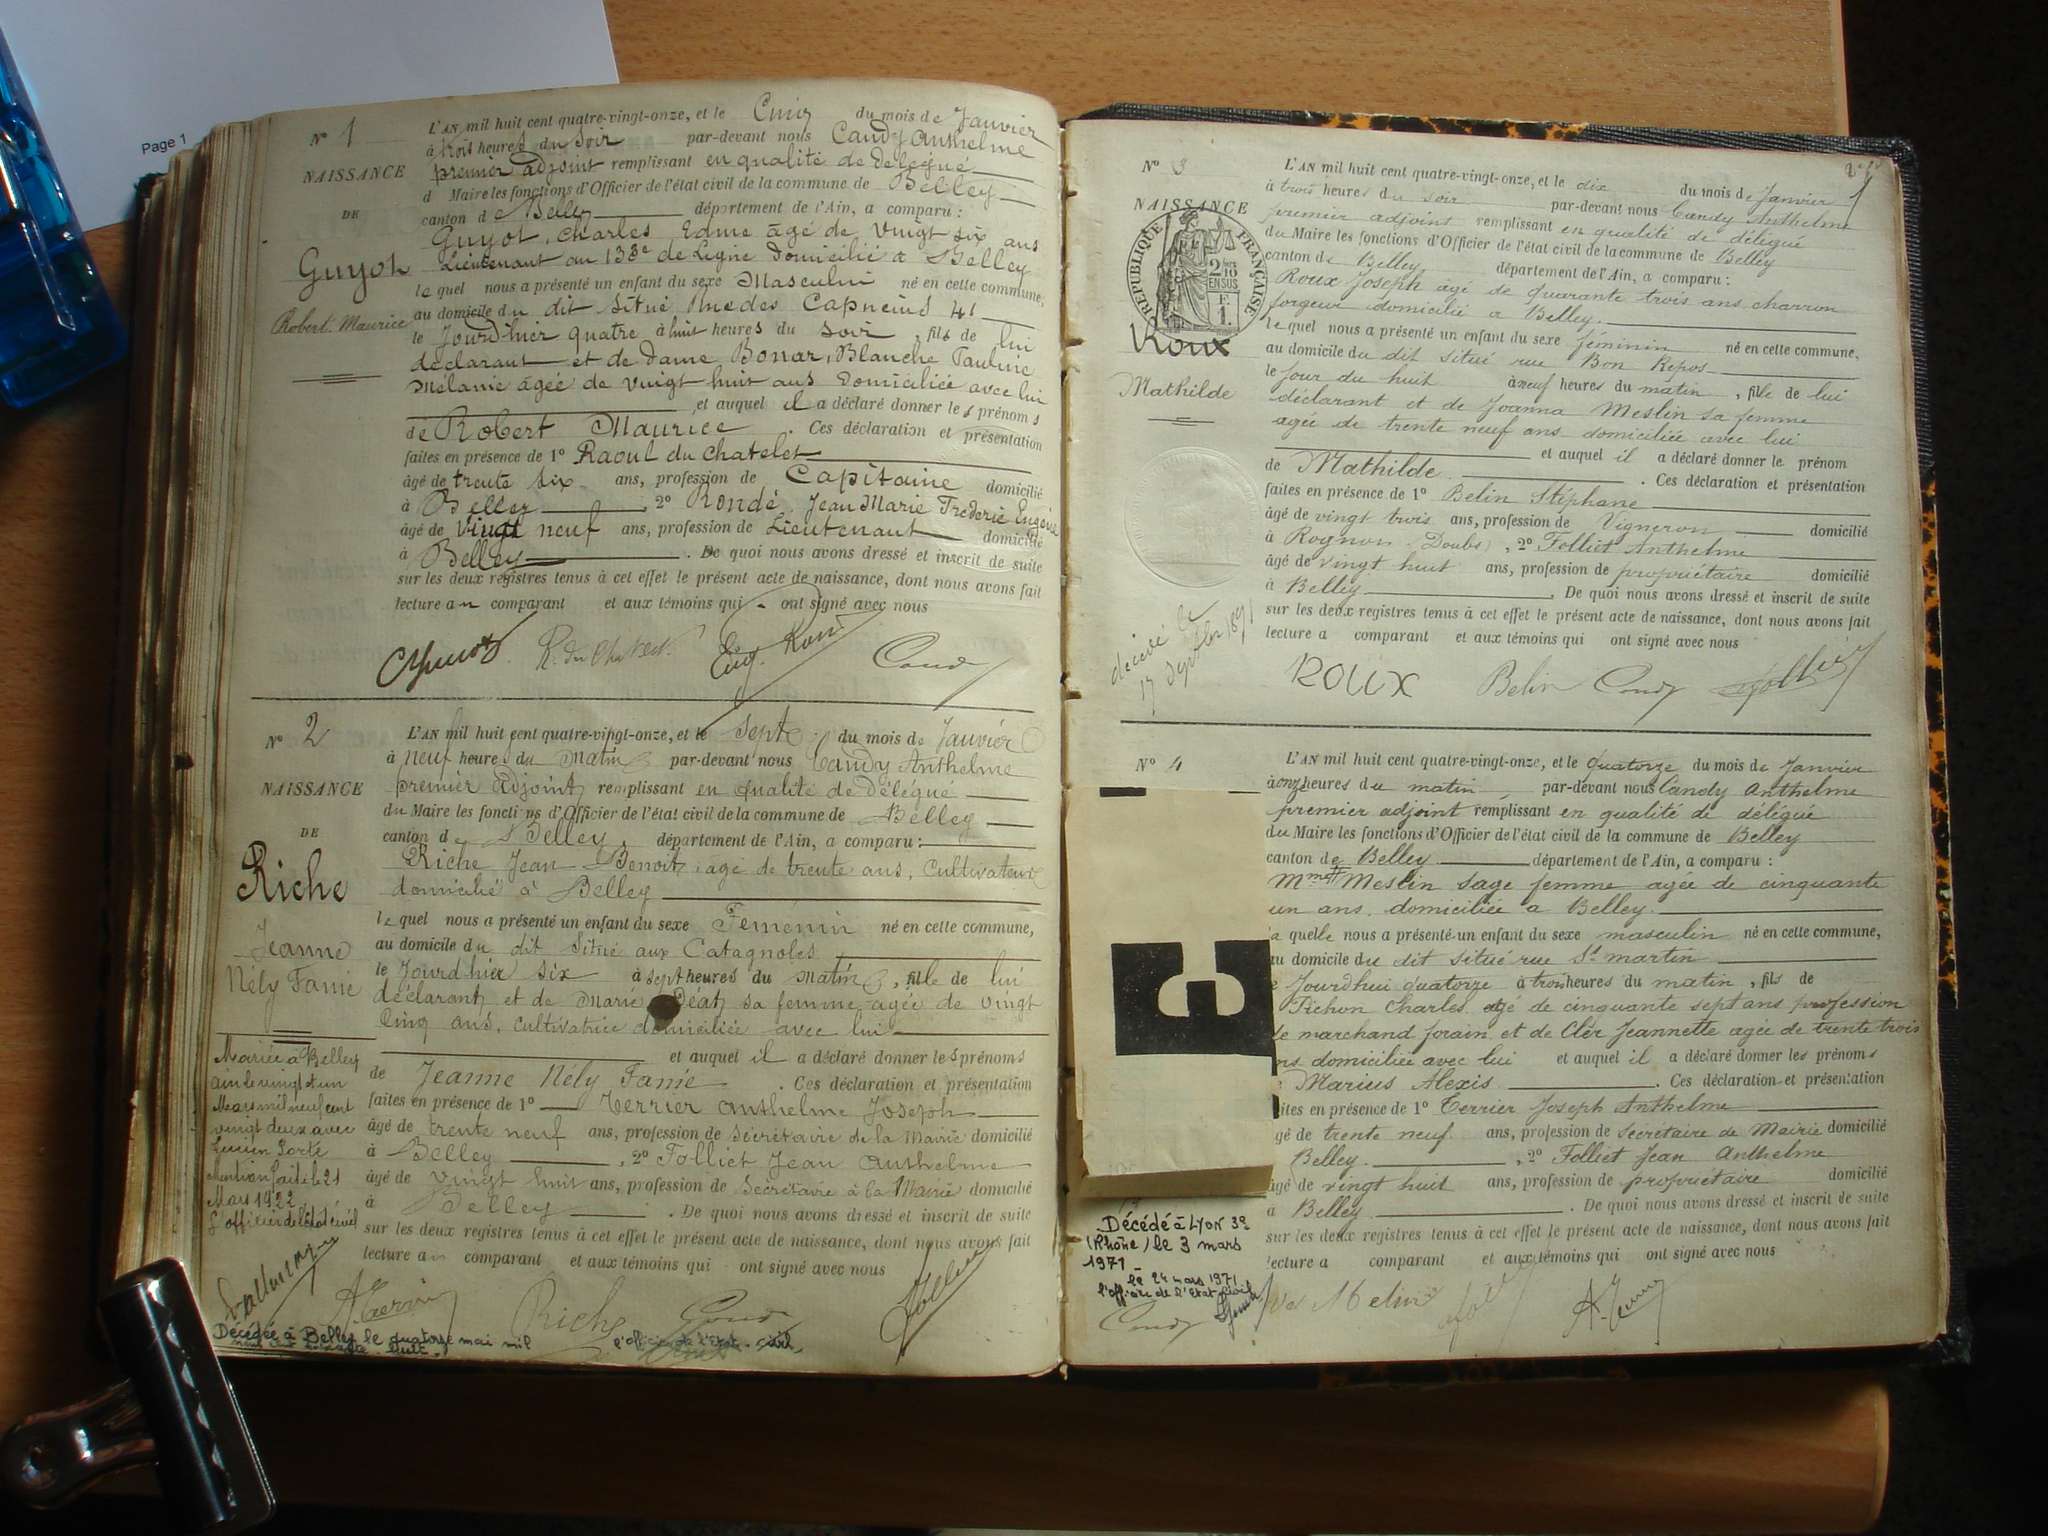 Page 1
N° 1
NAISSANCE
DE
Guyot
Robert Maurice
L'AN mil huit cent quatre-vingt-onze, et le Cinq du mois de Janvier
à trois heures du soir par-devant nous Candy Anthelme
premier adjoint remplissant en qualité de délégué
d Maire les fonctions d'Officier de l'état civil de la commune de Belley
canton de Belley département de l'Ain, a comparu :
Guyot, Charles Edme âgé de vingt six ans
Lieutenant au 133e de Ligne domicilié à Belley
lequel nous a présenté un enfant du sexe Masculin né en cette commune,
au domicile du dit situé Rue des Capucins 41
le Jourd'hier quatre à huit heures du Soir, fils de lui
déclarant et de dame Bonar, Blanche Pauline
Mélanie agée de vingt huit ans domiciliée avec lui
et auquel il a déclaré donner les prénoms
de Robert Maurice. Ces déclaration et présentation
faites en présence de 1° Raoul du Chatelet
âgé de trente six ans, profession de Capitaine domicilié
à Belley, 2° Rondé Jean Marie Frederic Eugène
âgé de vingt neuf ans, profession de Lieutenant domicilié
à Belley. De quoi nous avons dressé et inscrit de suite
sur les deux registres tenus à cet effet le présent acte de naissance, dont nous avons fait
lecture au comparant et aux témoins qui ont signé avec nous
R. du Chatelet Candy
N° 2
NAISSANCE
DE
Riche
Jeanne
Nély Fanie
L'AN mil huit cent quatre-vingt-onze, et le sept du mois de Janvier
à neuf heures du Matin par-devant nous Candy Anthelme
premier Adjoint remplissant en qualité de Délégué
du Maire les fonctions d'Officier de l'état civil de la commune de Belley
canton de Belley département de l'Ain, a comparu :
Riche Jean Benoit, agé de trente ans, Cultivateur
domicilié à Belley
lequel nous a présenté un enfant du sexe Féménin né en cette commune,
au domicile du dit Situé aux Catagnoles
le Jourdhier six à sept heures du matin, fille de lui
déclarant et de Marie Déat sa femme agée de vingt
cinq ans, cultivatrice domiciliée avec lui
et auquel il a déclaré donner les prénoms
de Jeanne Nély Fanie. Ces déclaration et présentation
faites en présence de 1° Terrier Anthelme Joseph
âgé de trente neuf ans, profession de Secrétaire de la Mairie domicilié
à Belley, 2° Folliet Jean Anthelme
âgé de vingt huit ans, profession de Secrétaire à la Mairie domicilié
à Belley. De quoi nous avons dressé et inscrit de suite
sur les deux registres tenus à cet effet le présent acte de naissance, dont nous avons fait
lecture au comparant et aux témoins qui ont signé avec nous
Mariée à Belley
Ain le vingt et un
Mars mil neuf cent
vingt deux avec
Lucien Porte
Mention faite le 21
Mars 1922
L'officier de l'état civil
Riche Candy Folliet
Décédée à Belley le quatorze mai mil
l'officier de l'Etat-civil
N° 3
NAISSANCE
RÉPUBLIQUE FRANÇAISE
Roux
Mathilde
L'AN mil huit cent quatre-vingt-onze, et le dix du mois de Janvier
à trois heures du soir par-devant nous Candy Anthelme
premier adjoint remplissant en qualité de délégué
du Maire les fonctions d'Officier de l'état civil de la commune de Belley
canton de Belley département de l'Ain, a comparu :
Roux Joseph agé de quarante trois ans charron
forgeur domicilié à Belley.
lequel nous a présenté un enfant du sexe féminin né en cette commune,
au domicile du dit situé rue Bon Repos
le jour du huit à neuf heures du matin, fille de lui
déclarant et de Joanna Meslin sa femme
agée de trente neuf ans domiciliée avec lui
et auquel il a déclaré donner le prénom
de Mathilde. Ces déclaration et présentation
faites en présence de 1° Belin Stéphane
âgé de vingt trois ans, profession de Vigneron domicilié
à Rognon (Doubs), 2° Folliet Anthelme
âgé de vingt huit ans, profession de propriétaire domicilié
à Belley. De quoi nous avons dressé et inscrit de suite
sur les deux registres tenus à cet effet le présent acte de naissance, dont nous avons fait
lecture a comparant et aux témoins qui ont signé avec nous
décédé le
17 1891
ROUX Belin Candy Folliet
N° 4
L'AN mil huit cent quatre-vingt-onze, et le quatorze du mois de Janvier
à onze heures du matin par-devant nous Candy Anthelme
premier adjoint remplissant en qualité de délégué
du Maire les fonctions d'Officier de l'état civil de la commune de Belley
canton de Belley département de l'Ain, a comparu :
Mme Meslin sage femme agée de cinquante
un ans domiciliée à Belley.
a quelle nous a présenté un enfant du sexe masculin né en cette commune,
au domicile du dit situé rue St martin
Jourdhui quatorze à trois heures du matin, fils de
Pichon Charles agé de cinquante sept ans profession
de marchand forain et de Clér Jeannette agée de trente trois
ans domiciliée avec lui et auquel il a déclaré donner les prénoms
Marius Alexis. Ces déclaration et présentation
ites en présence de 1° Terrier Joseph Anthelme
gé de trente neuf ans, profession de Secrétaire de Mairie domicilié
Belley, 2° Folliet Jean Anthelme
âgé de vingt huit ans, profession de propriétaire domicilié
à Belley. De quoi nous avons dressé et inscrit de suite
sur les deux registres tenus à cet effet le présent acte de naissance, dont nous avons fait
lecture a comparant et aux témoins qui ont signé avec nous
Décédé à Lyon 3e
(Rhône) le 3 mars
1971
le 24 mars 1971
l'officier de l'Etat civil
Candy